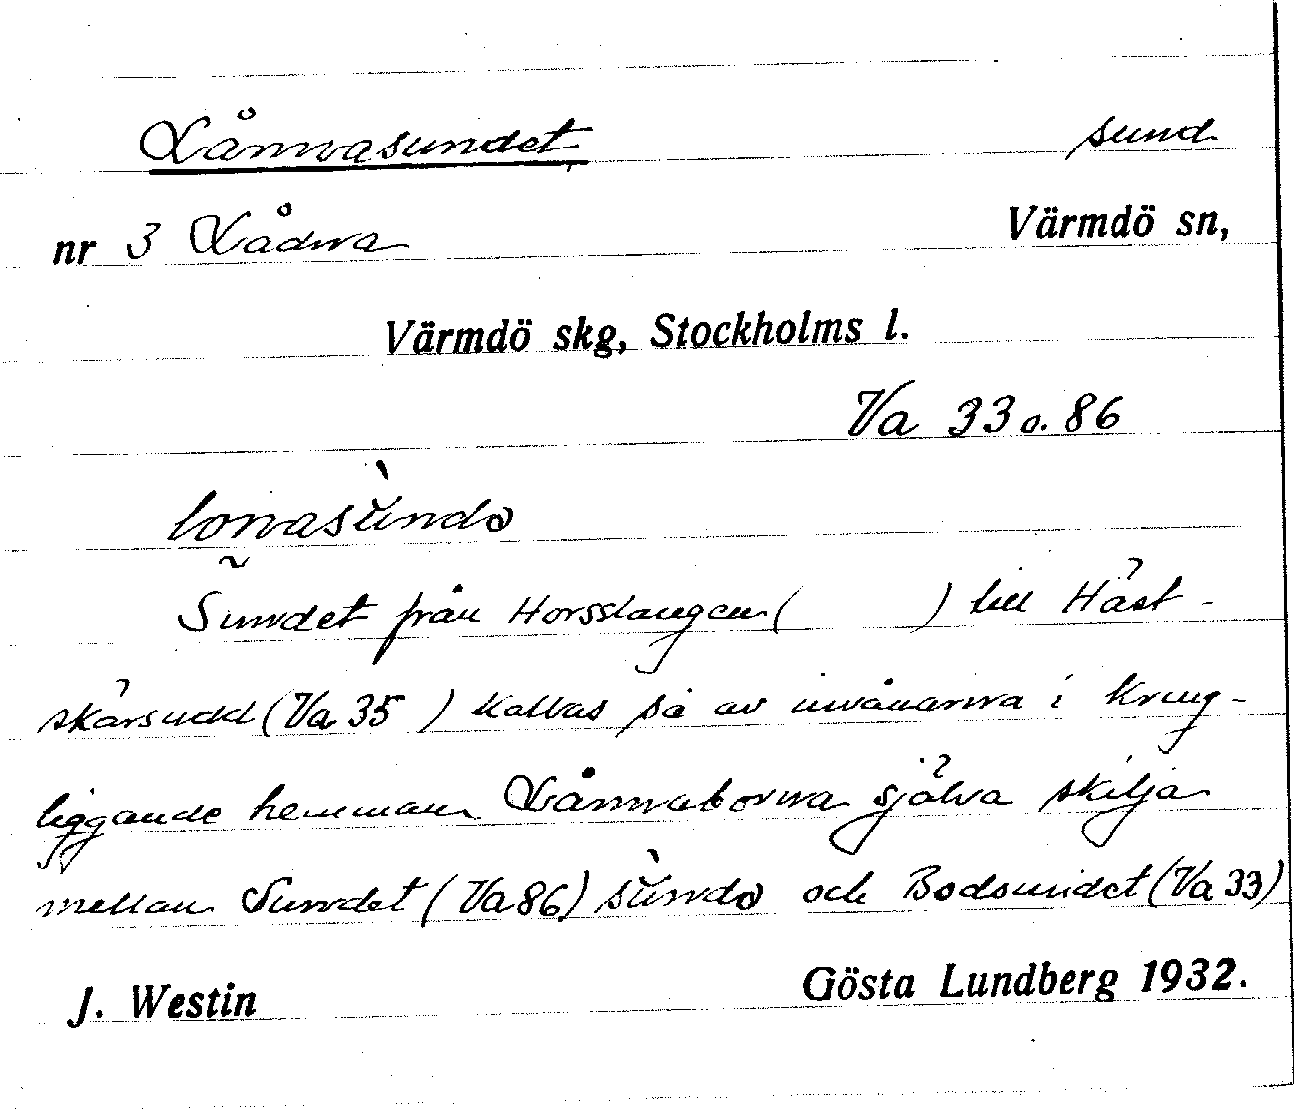 Lånnasundet sund
nr 3 Lådna Värmdö sn,
Värmdö skg, Stockholms l.
Va 33 o. 86
Sundet från Horsslangen ( ) till Häst-
skärsudd (Va 35 ) kallas så av invånarna i kring-
liggande hemman Lånnaborna själva skilja
mellan Sundet (Va 86) och Bodsundet (Va 33)
J. Westin Gösta Lundberg 1932.